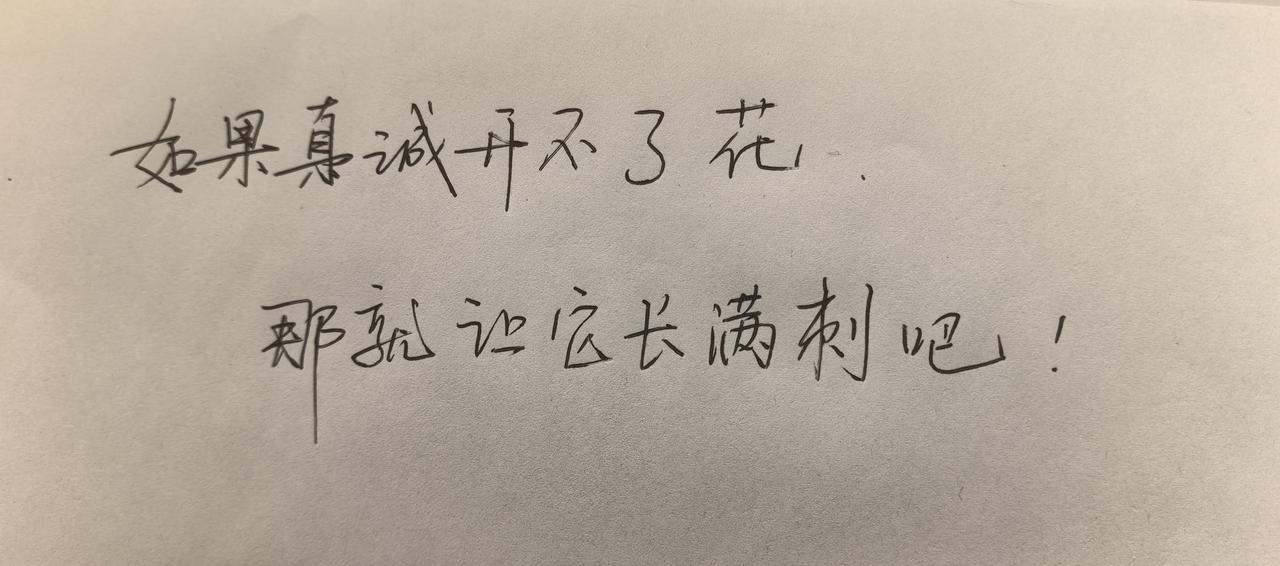 如果真诚开不了花.
那就让它长满刺吧!